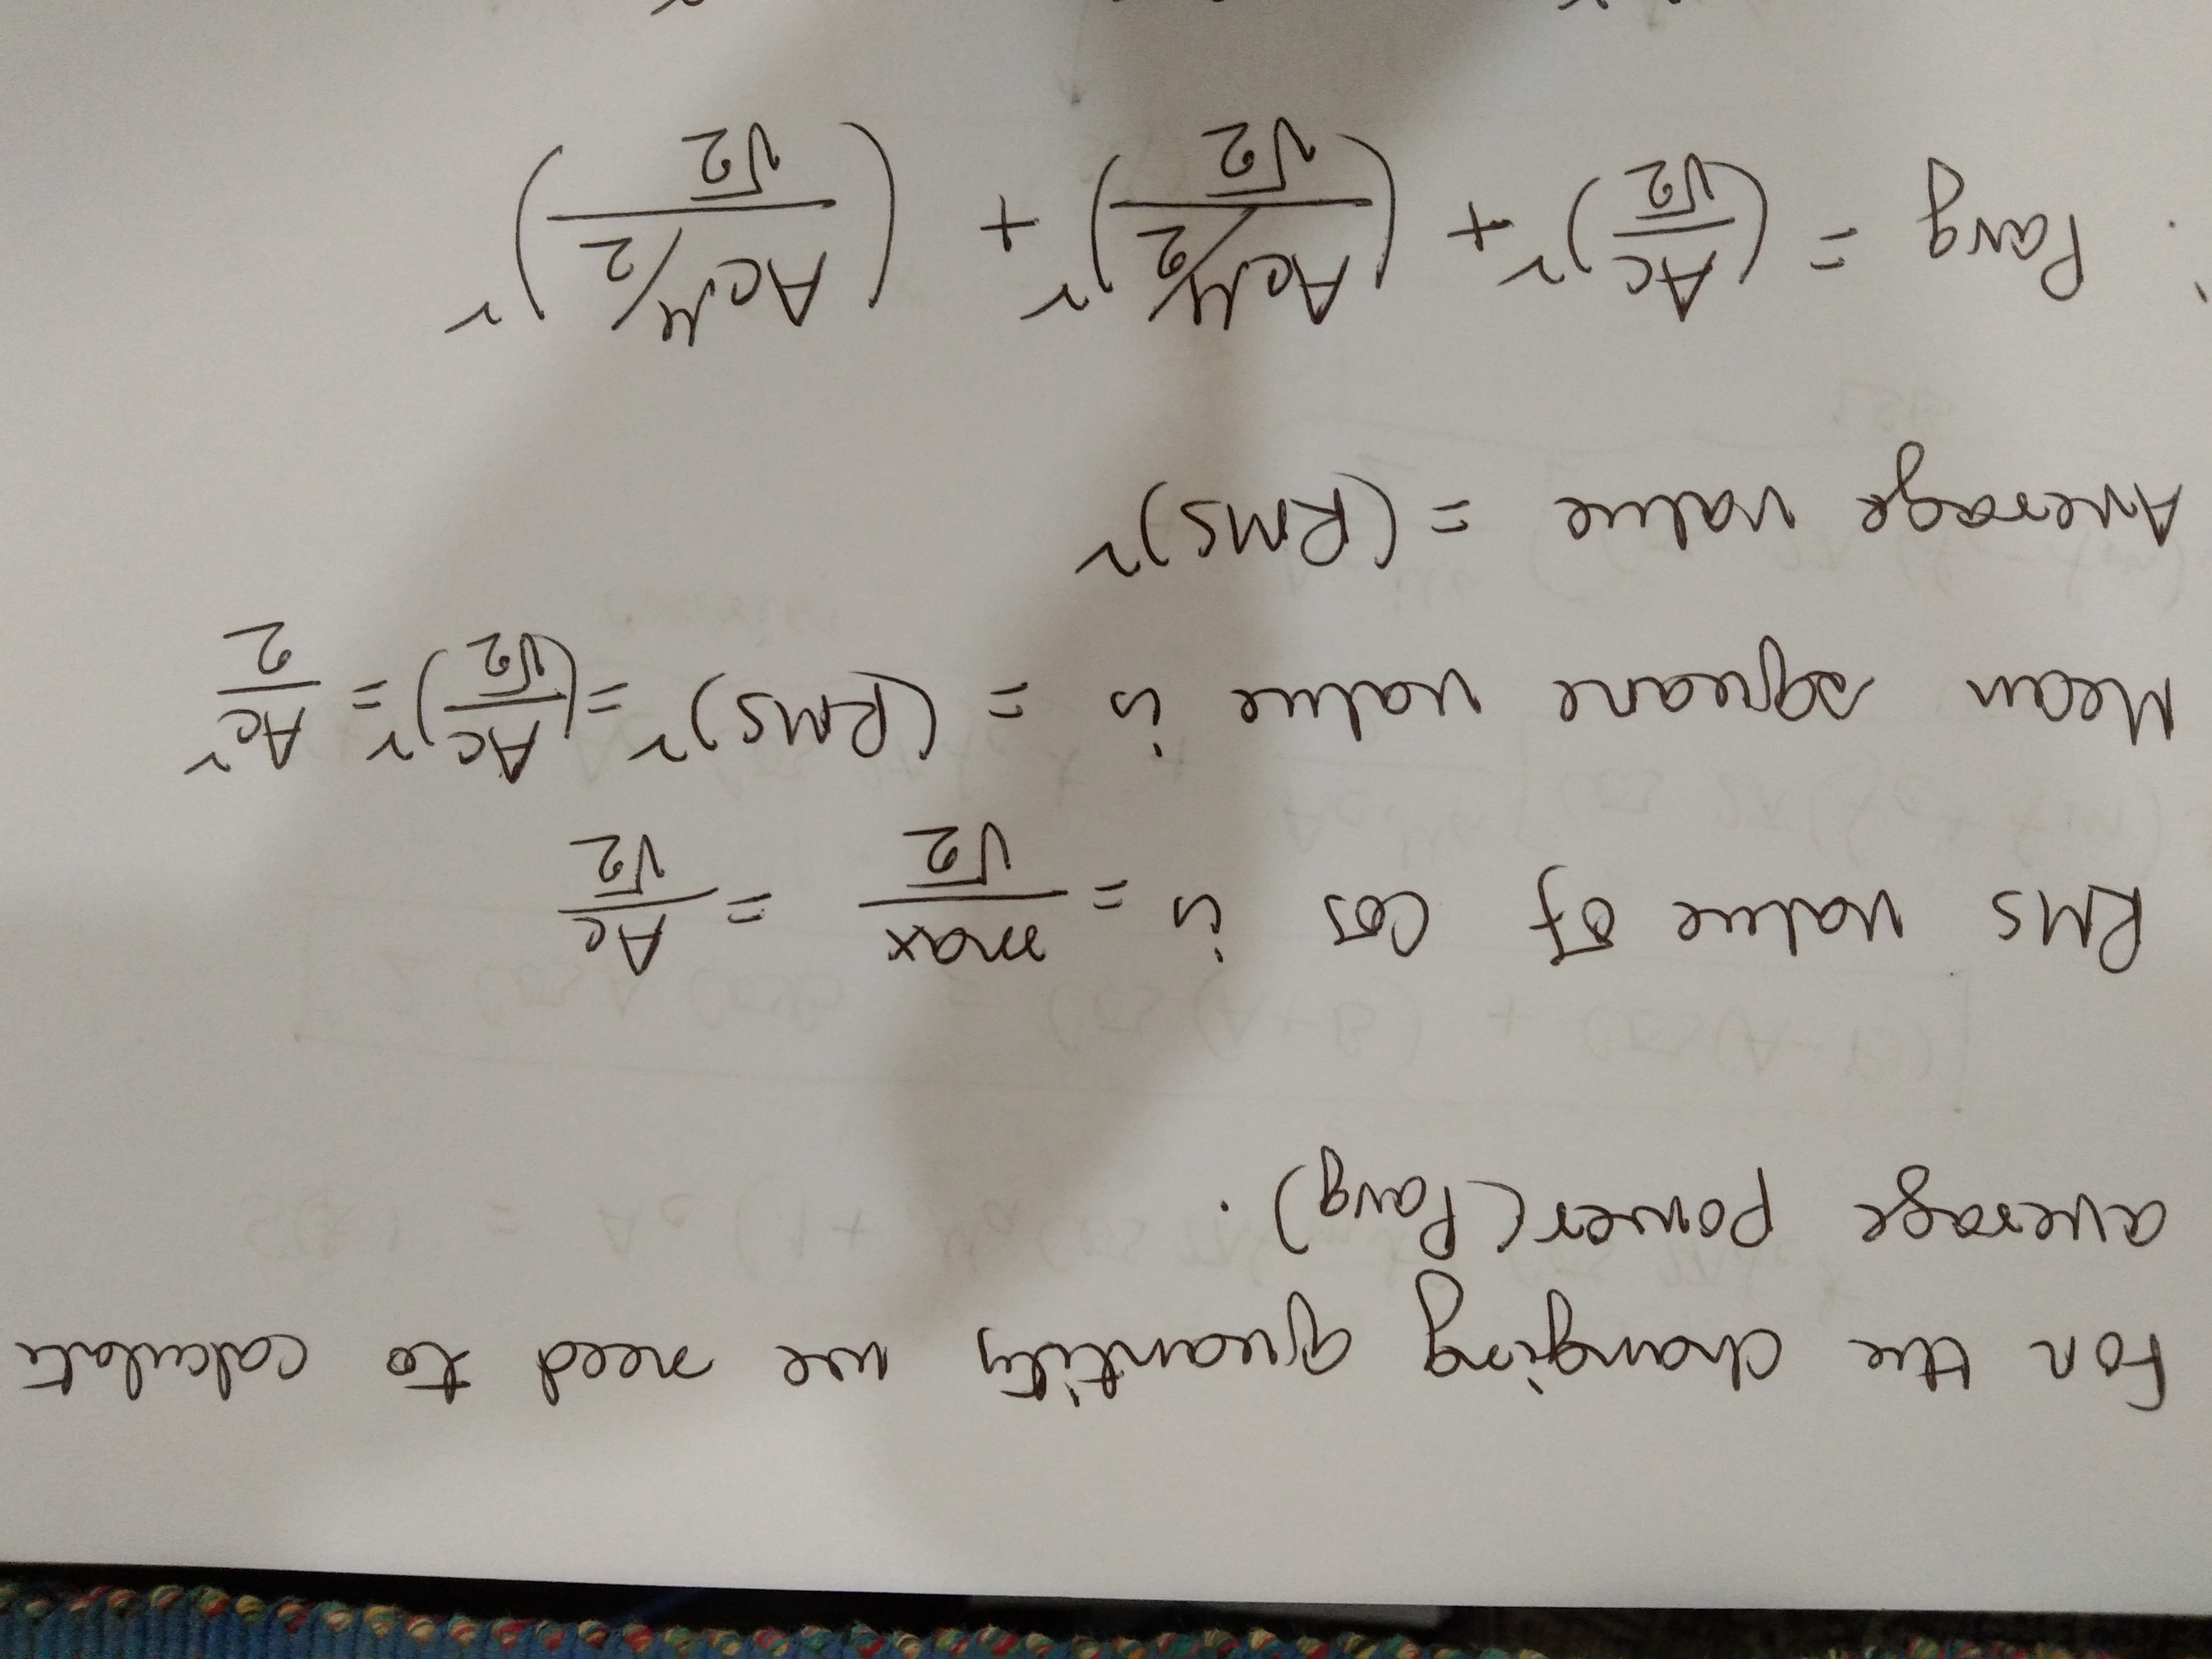 For the changing quantity we need to calculate
average power (Pavg).
RMS value of cos is = max/√2 = Ac/√2
Mean square value is = (RMS)² = (Ac/√2)² = Ac²/2
Average value = (RMS)²
∴ Pavg = (Ac/√2)² + (Acμ/2/√2)² + (Acμ/2/√2)²